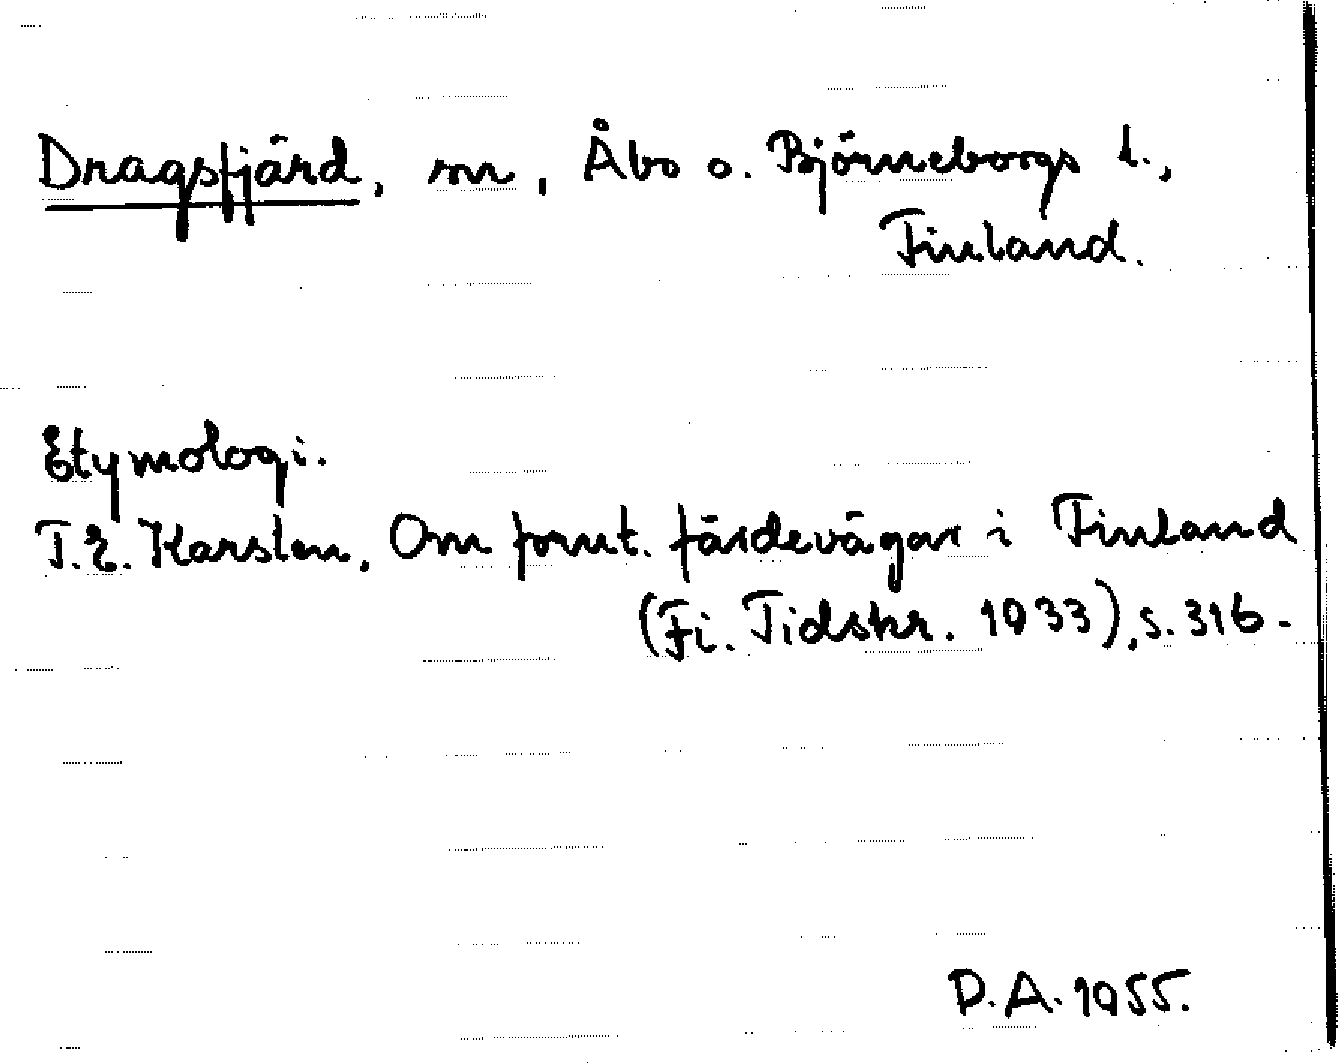 Dragsfjärd, sn, Åbo o. Björneborgs l.,
Finland.
Etymologi.
T.E. Karsten, Om fornt. färdevägar i Finland
(Fi. Tidskr. 1933), s. 316.
D.A. 1955.